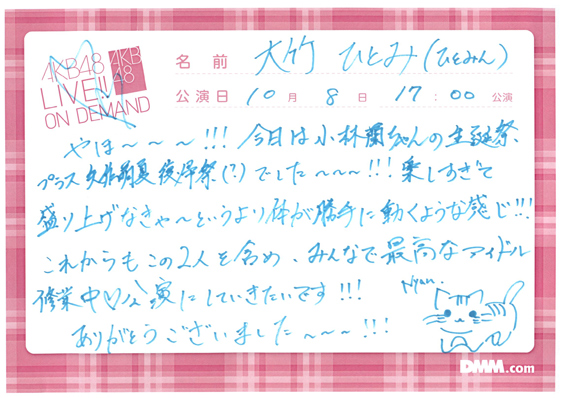 AKB48
LIVE!!
ON DEMAND
AKB
48
名前 大竹 ひとみ(ひとみん)
公演日 10月 8日 17:00 公演
やほ〜〜〜!!! 今日は小林蘭ちゃんの生誕祭、
プラス 矢作萌夏 復帰祭(?)でした〜〜〜!!! 楽しすぎて
盛り上げなきゃ〜というより体が勝手に動くような感じ!!!
これからもこの2人を含め、みんなで最高なアイドル
修業中♡公演にしていきたいです!!!
ありがとうございました〜〜〜!!!
Nyan.
DMM.com